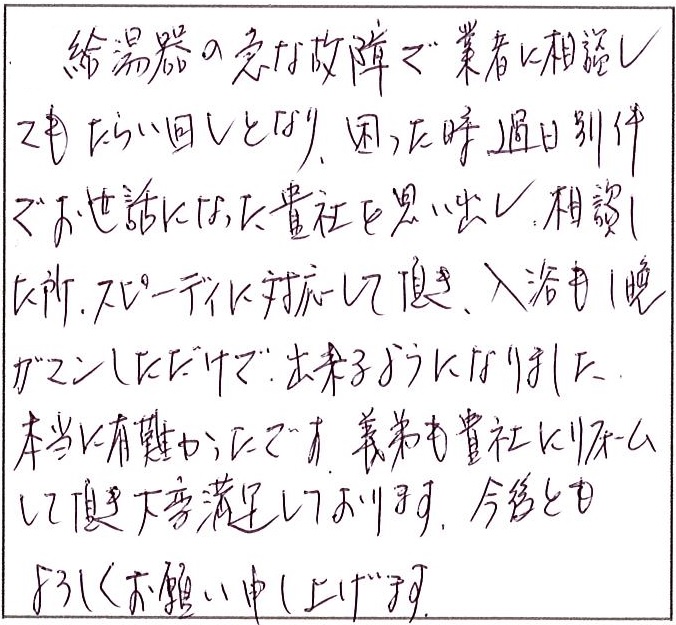 給湯器の急な故障で業者に相談し
てもたらい回しとなり、困った時過日別件
でお世話になった貴社を思い出し、相談し
た所、スピーディに対応して頂き、入浴も1晩
ガマンしただけで、出来るようになりました。
本当に有難かったです。義弟も貴社にリフォーム
して頂き大変満足しております。今後とも
よろしくお願い申し上げます。